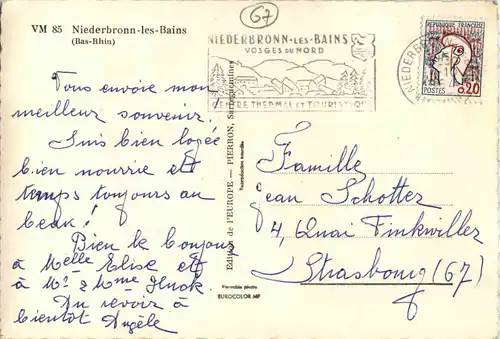 VM 85 Niederbronn-les-Bains
(Bas-Rhin)
67
NIEDERBRONN-LES-BAINS
VOSGES DU NORD
CENTRE THERMAL ET TOURISTIQUE
REPUBLIQUE FRANCAISE
POSTES 0.20
NIEDERBRO
Vous envoie mon
meilleur souvenir.
Suis bien logée
bien nourrie et
temps toujours au
beau!
Bien le bonjour
à Melle Elise et
à Mr & Mme Huck.
Au revoir à
bientôt Angèle
Edition de l'EUROPE - PIERRON, Sarreguemines
Reproduction interdite
Véritable photo
EUROCOLOR MP
Famille
Jean Schotter
4, Quai Finkwiller
Strasbourg (67)